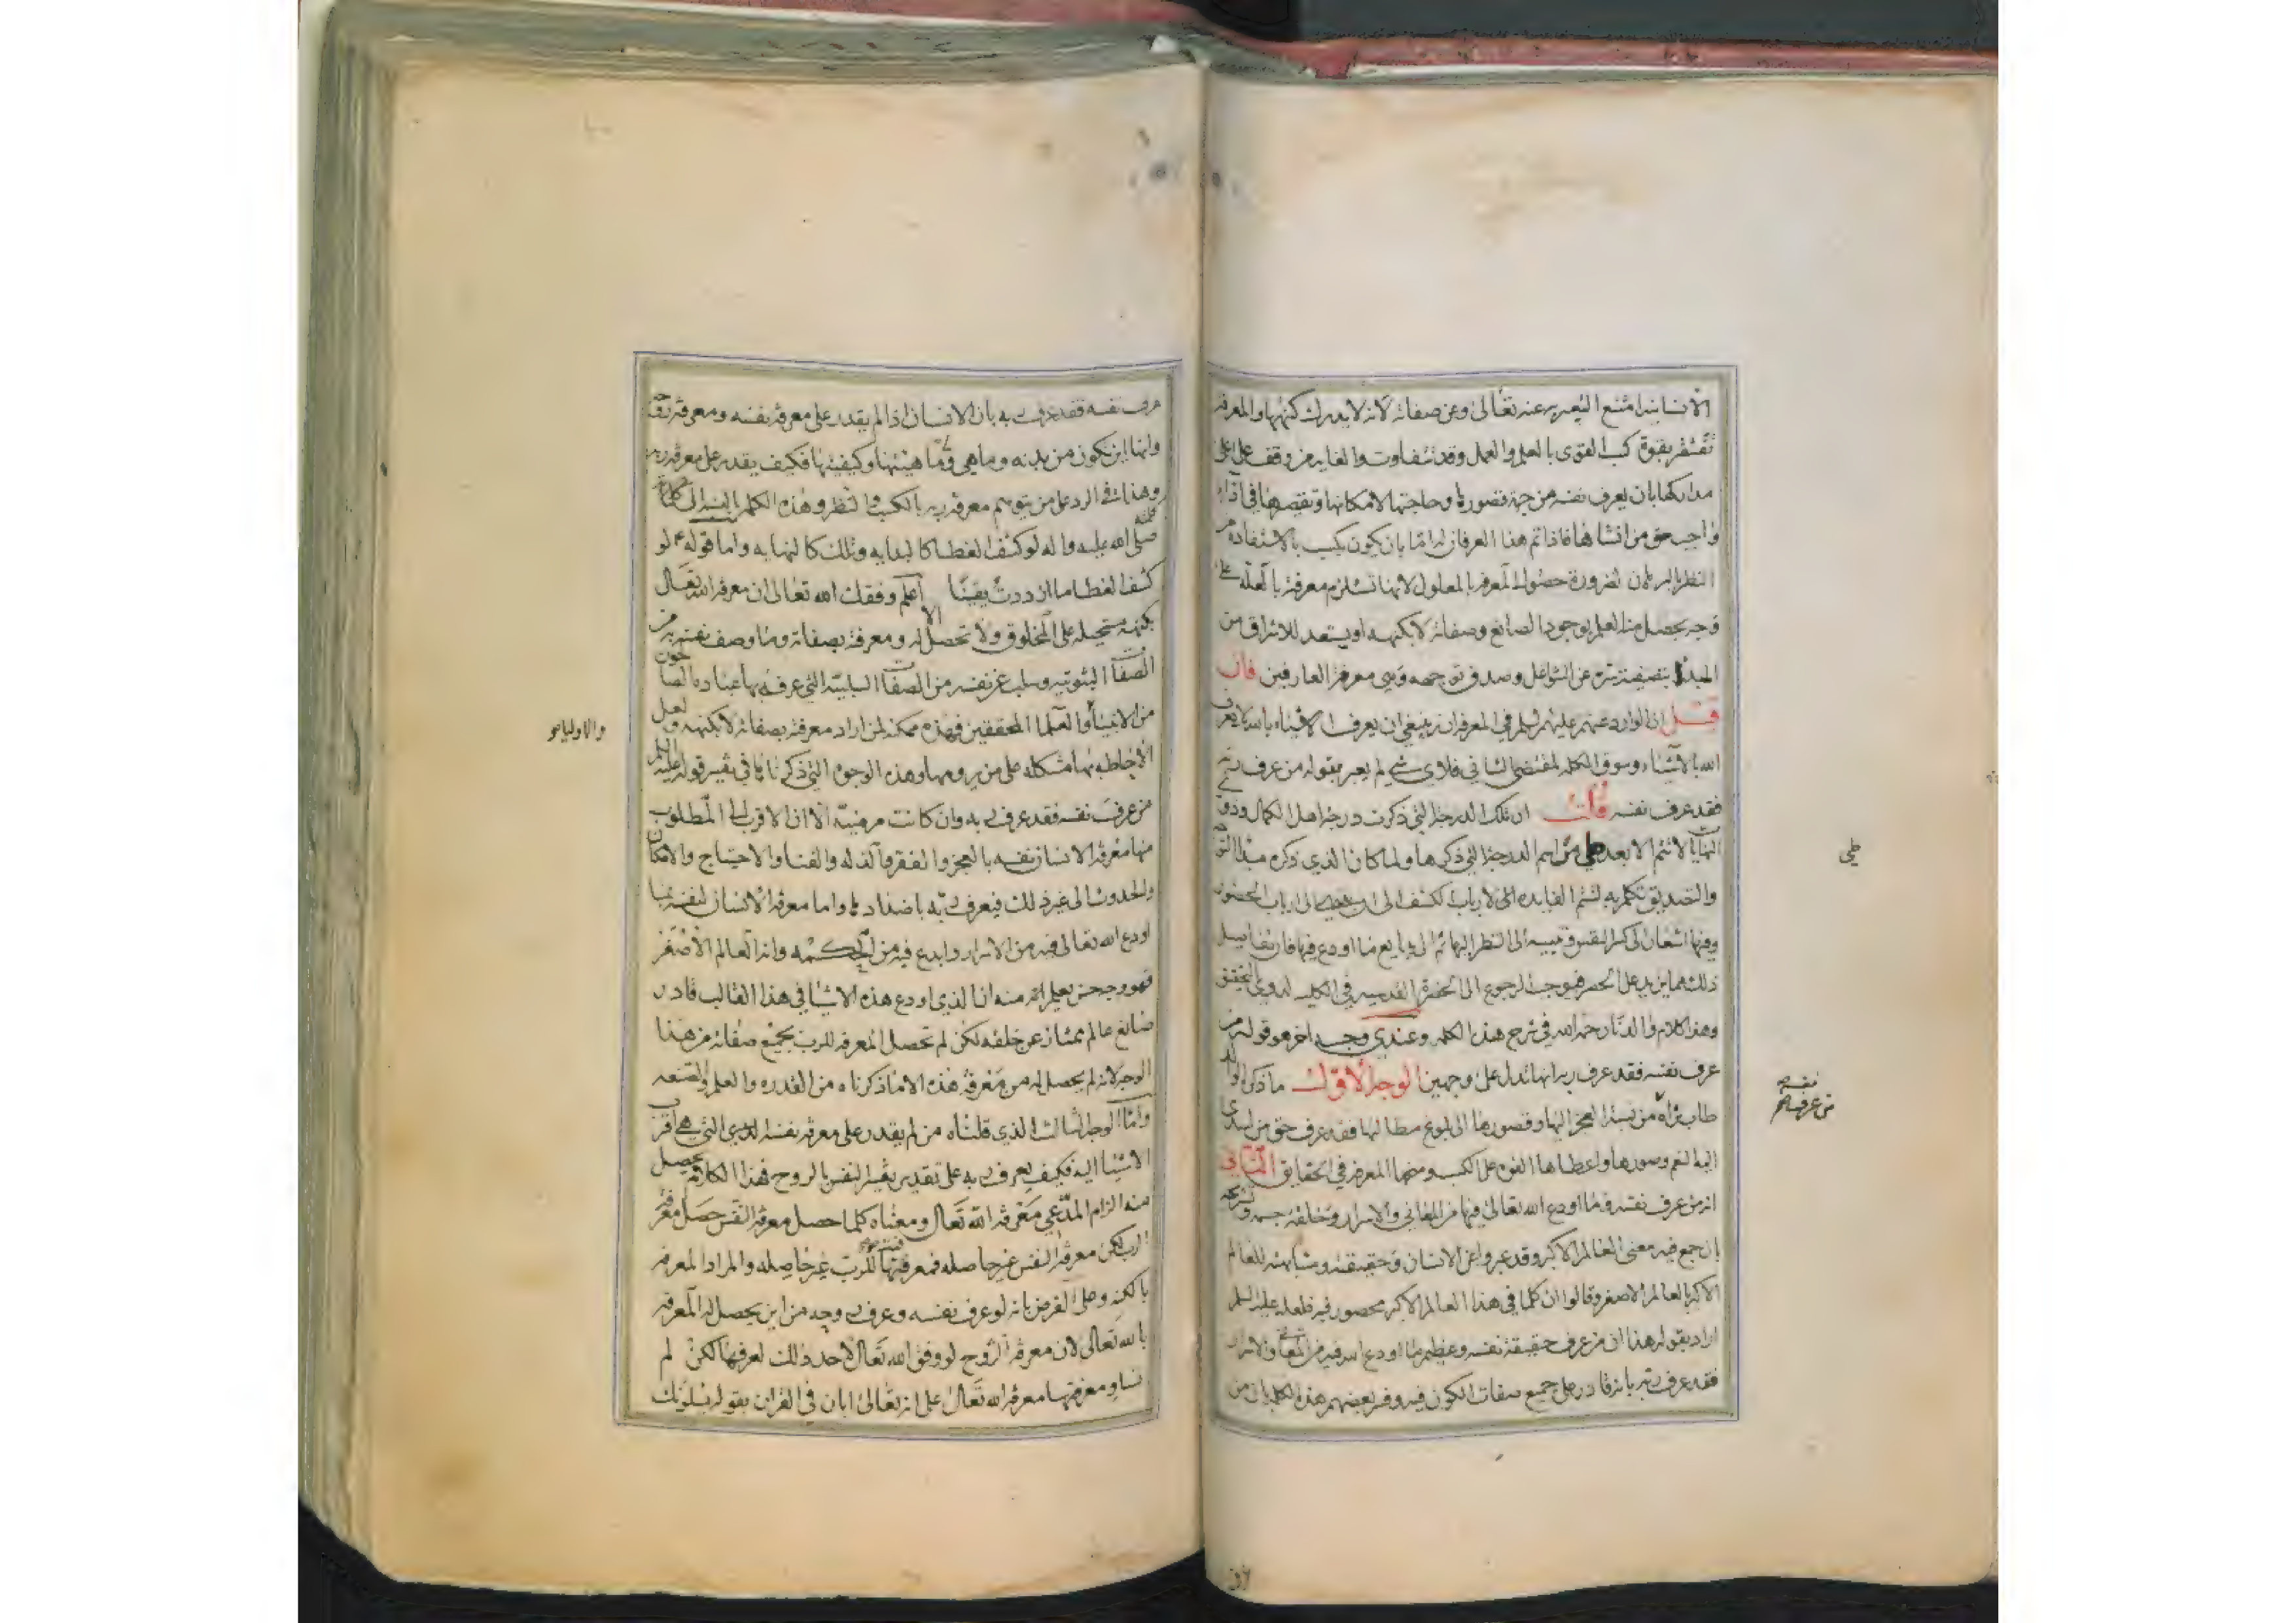 الانسانية امتنع التعبير عنه تعالى وعن صفاته لانه لا يدرك كنهها والمعرفة
بقوة كسب القوى بالعلم والعمل وقد تتفاوت والغاية من وقف على اعلى
مداركها بان يعرف نفسه من جهة قصورها وحاجتها لامكانها ونقصها في
واجب حق من انشاها فاذا تم هذا العرفان اما بان يكون يكسب بالاستفادة من
النظر البرهان لضرورة حصول المعرفة بالمعلول لانها تستلزم معرفة بالعلة على
وجه يحصل منه العلم بوجود الصانع وصفاته لا بكنهه او يستعد للاشراق من
المبدا عن الشواغل وصدق توجهه وهي معرفة العارفين فان
قيل ان الوارد عنهم عليهم السلم في المعرفة انه ينبغي ان يعرف الاشياء بالله لا يعرف
الله بالاشياء وسوق الكلمة لمقتضى الثاني فلاي شي لم يعبر بقوله من عرف ربه
فقد عرف نفسه قلت ان تلك الدرجة التي ذكرت درجة اهل الكمال وذوي
لا تتم الا بعد طي الدرجة التي ذكرها ولما كان الذي ذكره مبدا
والتصديق تكلم به لتتم الفايدة لارباب الكشف الى ارباب الحضور
وفيها اشعار الى كسر النفس وتنبيه الى النظر اليها ثم الى بدايع ما اودع فيها فان تفاصيل
ذلك مما يزيد على الحصر فهو جهة الرجوع الى الحضرة القدسية في الكلية لذوي التحقيق
وهذا كلام والدنا رحمه الله في شرح هذه الكلمة وعندي وجه اخر هو قوله من
عرف نفسه فقد عرف ربه انها تدل على وجهين الوجه الاول ما ذكر الوالد
طاب ثراه من نسبة العجز اليها وقصورها الى بلوغ مطالبها فقد عرف حق من اسدى
اليه النعم وصورها واعطاها القوة على الكسب ومنحها المعرفة في الحقايق الثاني
انه من عرف نفسه وما اودع الله تعالى فيها من المعاني والاسرار وخلقة جسمه وتشريحه
بان جمع فيه معنى العالم الاكبر وقد عبروا عن الانسان وحقيقته ومشابهته للعالم
الاكبر بالعالم الاصغر وقالوا ان كلما في هذا العالم الاكبر محصور فيه فلعله عليه السلم
اراد بقوله هذا ان من عرف حقيقة نفسه وعظيم ما اودع الله فيه من المعاني والاسرار
فقد عرف ربه بانه قادر على جميع صفات الكون فيه وفسر بعضهم هذه الكلمة بان من
طي
نفسه
من عرف
عرف نفسه فقد عرف ربه بان الانسان اذا لم يقدر على معرفة نفسه ومعرفة
وانها اين تكون من بدنه وما هي وما هيئتها وكيفيتها فكيف يقدر على معرفة ربه
وهذا في الرد على من يتوسم معرفة ربه بالكسب والنظر وهذه الكلمة بالنسبة الى كلمة
صلى الله عليه واله لو كشف الغطا كالبداية وتلك كالنهاية واما قوله ع لو
كشف الغطا ما ازددت يقينا اعلم وفقك الله تعالى ان معرفة الله تعالى
بكنهه مستحيلة على المخلوق ولا تحصل الا له ومعرفة بصفاته وما وصف نفسه به من
الصفات الثبوتية وسلب عن نفسه من الصفات السلبية التي عرفه بها عباده الصالحون
من الانبيا والعلما المحققين فهذه ممكنة لمن اراد معرفة بصفاته لا بكنهه ولعل
الاحاطة بها مشكلة على من يرومها وهذه الوجوه التي ذكرناها في تفسير قوله عليه السلم
من عرف نفسه فقد عرف ربه وان كانت مرضية الا ان الاقرب الى المطلوب
منها معرفة الانسان نفسه بالعجز والفقر والذلة والفنا والاحتياج والامكان
والحدوث الى غير ذلك فيعرف ربه باضدادها واما معرفة الانسان لنفسه بما
اودع الله تعالى فيه من الاسرار وابدع فيه من الحكمة وانه العالم الاصغر
فهو وجه حسن يعلم انه منه ان الذي اودع هذه الاشيا في هذا القالب قادر
صانع عالم ممتاز عن خلقه لكن لم تحصل المعرفة للرب بجميع صفاته من هذا
الوجه لانه لم يحصل له من معرفة هذه الا ما ذكرناه من القدرة والعلم والصنعه
واما الوجه الثالث الذي قلناه من لم يقدر على معرفة نفسه التي هي اقرب
الاشيا اليه فكيف يعرف ربه على تقدير تفسير النفس بالروح فهذا الكلام يحصل
منه الزام المدعي معرفة الله تعالى ومعناه كلما حصل معرفة النفس حصل معرفة
الرب لكن معرفة النفس غير حاصلة فمعرفة الرب غير حاصله والمراد المعرفة
بالكنه وعلى الفرض بانه لو عرف نفسه وعرف وجه من اين يحصل له المعرفه
بالله تعالى لان معرفة الروح لو وفق الله تعالى لاحد ذلك لعرفها لكن لم
تساو معرفتها معرفة الله تعالى على انه تعالى ابان في القران بقوله يسلونك
والاولياء